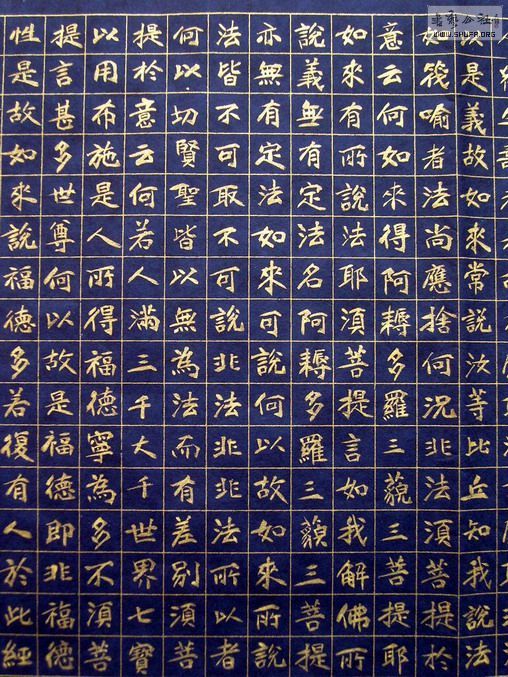 是義故如來常說汝等比丘知我說法
如筏喻者法尚應捨何況非法須菩提於
意云何如來得阿耨多羅三藐三菩提耶
如來有所說法耶須菩提言如我解佛所
說義無有定法名阿耨多羅三藐三菩提
亦無有定法如來可說何以故如來所說
法皆不可取不可說非法非非法所以者
何以切賢聖皆以無為法而有差別須菩
提於意云何若人滿三千大千世界七寶
以用布施是人所得福德寧為多不須菩
提言甚多世尊何以故是福德即非福德
性是故如來說福德多若復有人於此經
WWW.SHUFA.ORG